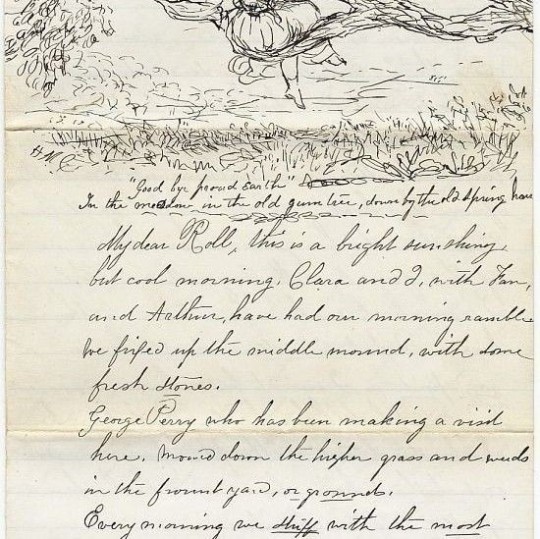 H.M.C
"Good bye proud Earth"
In the meadow in the old gum tree, down by the old spring
My dear Roll, this is a bright sunshiny,
but cool morning. Clara and I, with Fan,
and Arthur, have had our morning ramble
We fixed up the middle mound, with some
fresh stones.
George Perry who has been making a visit
here. Mowed down the higher grass and weeds
in the frount yard, or grounds.
Every morning we stuff with the most